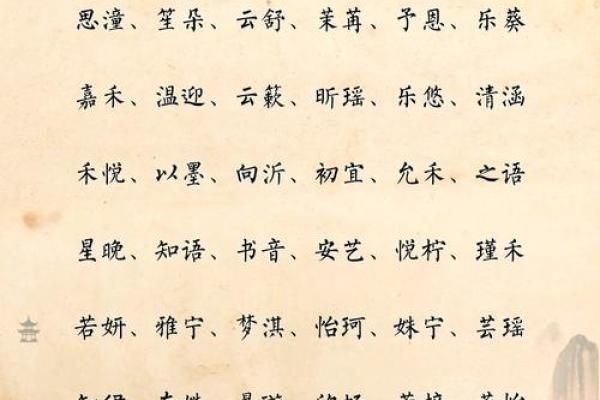 思潼、笙朵、云舒、茉苒、予恩、乐葵
嘉禾、温迎、云簌、昕瑶、乐悠、清涵
禾悦、以墨、向沂、初宜、允禾、之语
星晚、知语、书音、安艺、悦柠、瑾禾
若妍、雅宁、梦淇、怡珂、姝宁、芸瑶